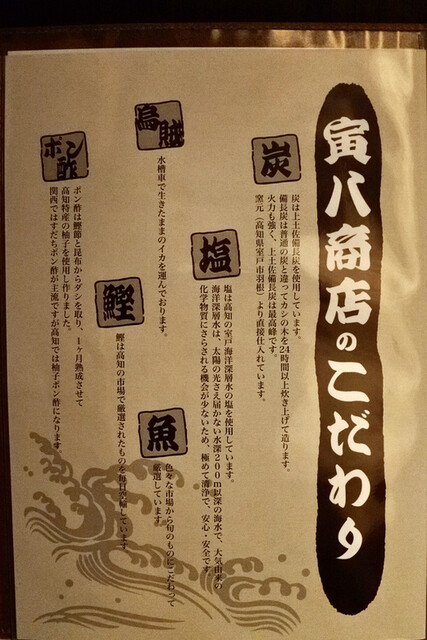 寅八商店のこだわり
炭
炭は上土佐備長炭を使用しています。
備長炭は普通の炭と違ってカシの木を24時間以上炊き上げて造ります。
火力も強く、上土佐備長炭は最高峰です。
窯元（高知県室戸市羽根）より直接仕入れています。
塩
塩は高知の室戸海洋深層水の塩を使用しています。
海洋深層水は、太陽の光さえ届かない水深200m以深の海水で、大気由来の
化学物質にさらされる機会が少ないため、極めて清浄で、安心・安全です
魚
色々な市場から旬のものにこだわって
厳選しています。
烏賊
水槽車で生きたままのイカを運んでおります。
鰹
鰹は高知の市場で厳選されたものを毎日空輸しています。
ポン酢
ポン酢は鰹節と昆布からダシを取り、1ヶ月熟成させて
高知特産の柚子を使用し作りました。
関西ではすだちポン酢が主流ですが高知では柚子ポン酢になります。